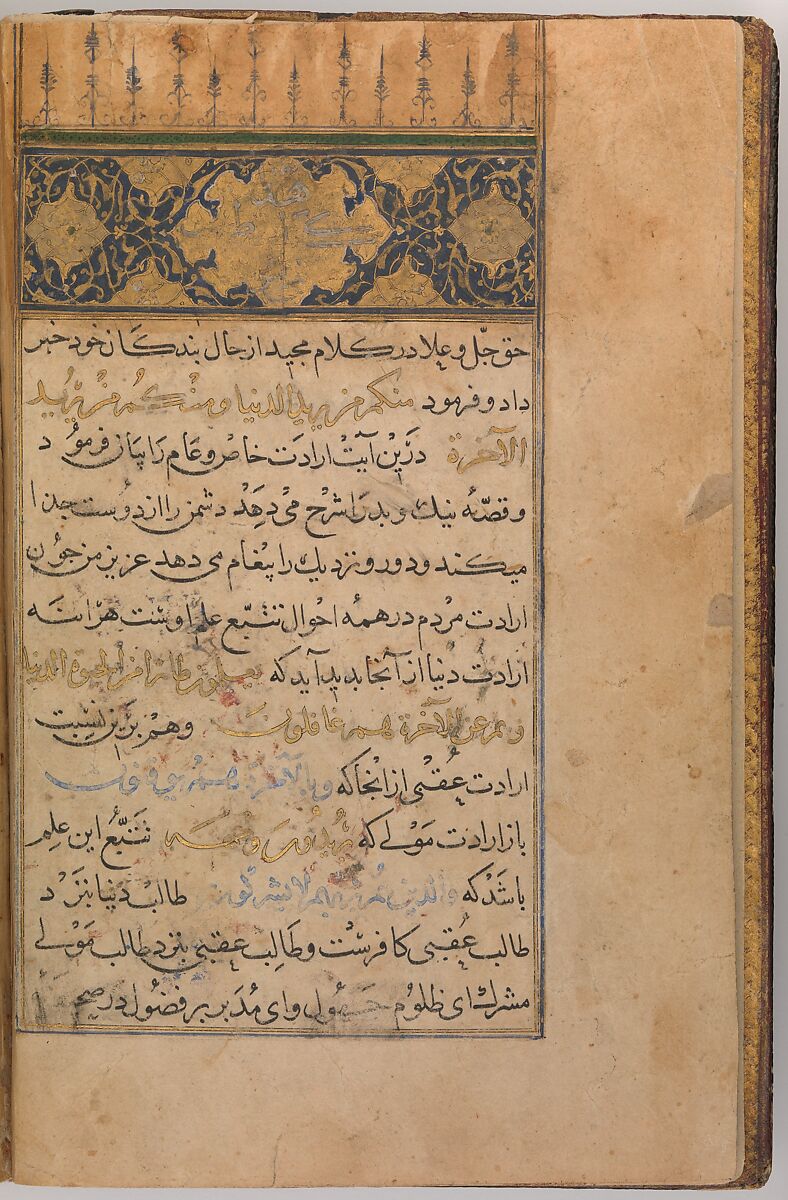 هذا كتاب
حق جلّ وعلا در کلام مجید از حال بندکان خود خبر
داد و فرمود منکم من یرید الدنیا ومنکم من یرید
الآخرة درین آیت ارادت خاص و عام را بیان فرمود
و قصّهٔ نیك و بد را شرح می دهد دشمن را از دوست جدا
میکند و دور و نزدیك را پیغام می دهد عزیز من چون
ارادت مردم در همه احوال تتبّع علم اوست هراینه
ارادت دنیا از آنجا بدید آید که یعلمون ظاهرا من الحیوة الدنیا
وهم عن الآخرة هم غافلون وهم برین نسبت
ارادت عقبی از انجا که وبالآخرة هم یوقنون
باز ارادت مولی که یریدون وجهه تتبّع این علم
باشد که والذین هم بربهم لا یشرکون طالب دنیا بنزد
طالب عقبی کافرست و طالب عقبی بنزد طالب مولی
مشرك ای ظلوم جهول وای مدبر بر فضول در